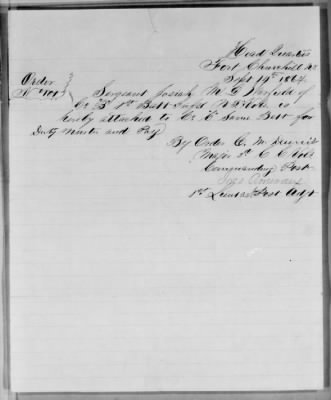 Head Quarters
Fort Churchill N.T.
Sept 19th 1864.
Order
No 101
Sergeant Josiah M. L. Warfield of
Co. B 1st Batt N.T. Vols is
hereby attached to Co. E Same Batt for
Duty Muster and Pay
By Order C. M.
Major 2d C C Vols
Commanding Post
1st Lieut Post Adjt